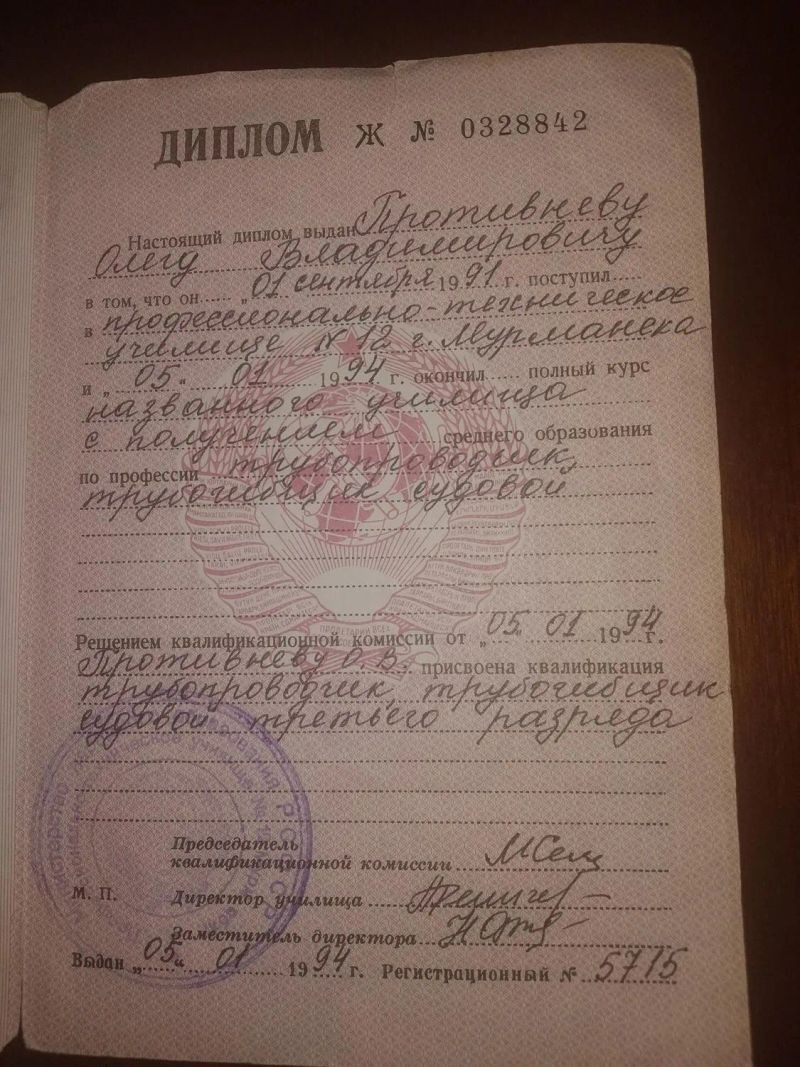 ДИПЛОМ Ж № 0328842
Настоящий диплом выдан Противневу
Олегу Владимировичу
в том, что он „01 сентября 1991 г. поступил
в профессионально-техническое
училище №12 г. Мурманска
и „05“ 01 1994 г. окончил полный курс
названного училища
с получением среднего образования
по профессии трубопроводчик,
трубогибщик судовой
ПРОЛЕТАРИИ ВСЕХ
Решением квалификационной комиссии от „05“ 01 1994 г.
Противневу О.В. присвоена квалификация
трубопроводчик, трубогибщик
судовой третьего разряда
Председатель
квалификационной комиссии
М. П. Директор училища
Заместитель директора
Выдан „05“ 01 1994 г. Регистрационный № 5715